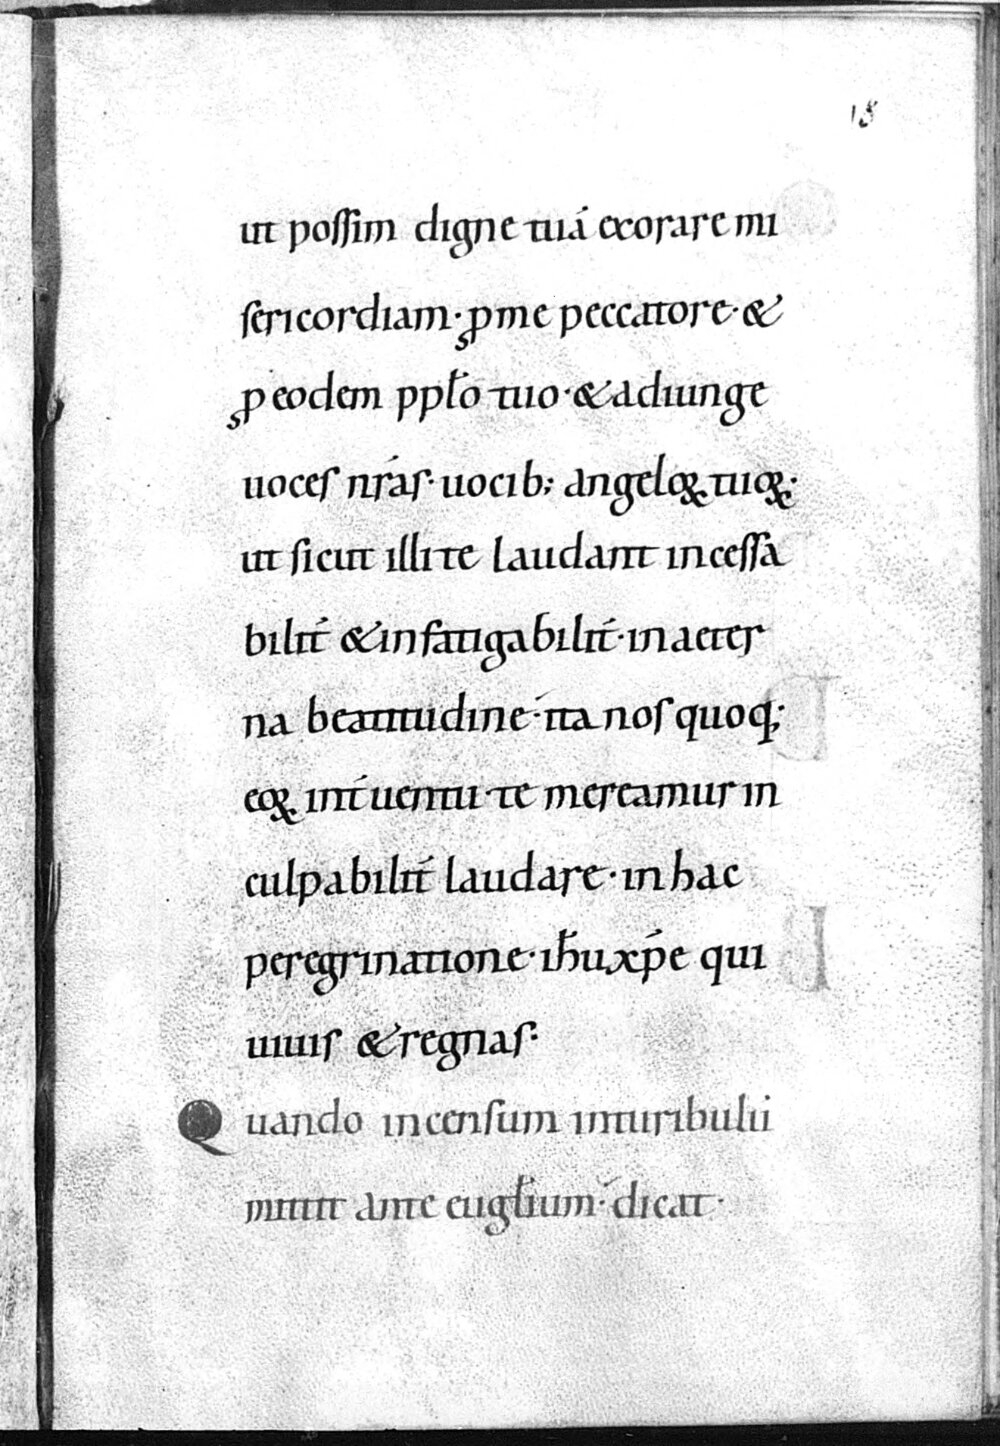 18
ut poſſim digne tuá exorare mi
ſericordiam· ꝓ me peccatore· &
ꝓ eodem ppło tuo· & adiunge
uoceſ nŕaſ· uocib; angeloꝝ tuoꝝ·
ut ſicut illi te laudant inceſſa
bilit́ & infatigabilit́· in aeter
na beatitudine· ita noſ quoq;
eoꝝ int́uentu· te mereamur in
culpabilit́ laudare· in hac
peregrinatione· ihu xp̄e qui
uiuiſ & regnaſ:
Quando incenſum in turibulū
mittit ante euglium· dicat·